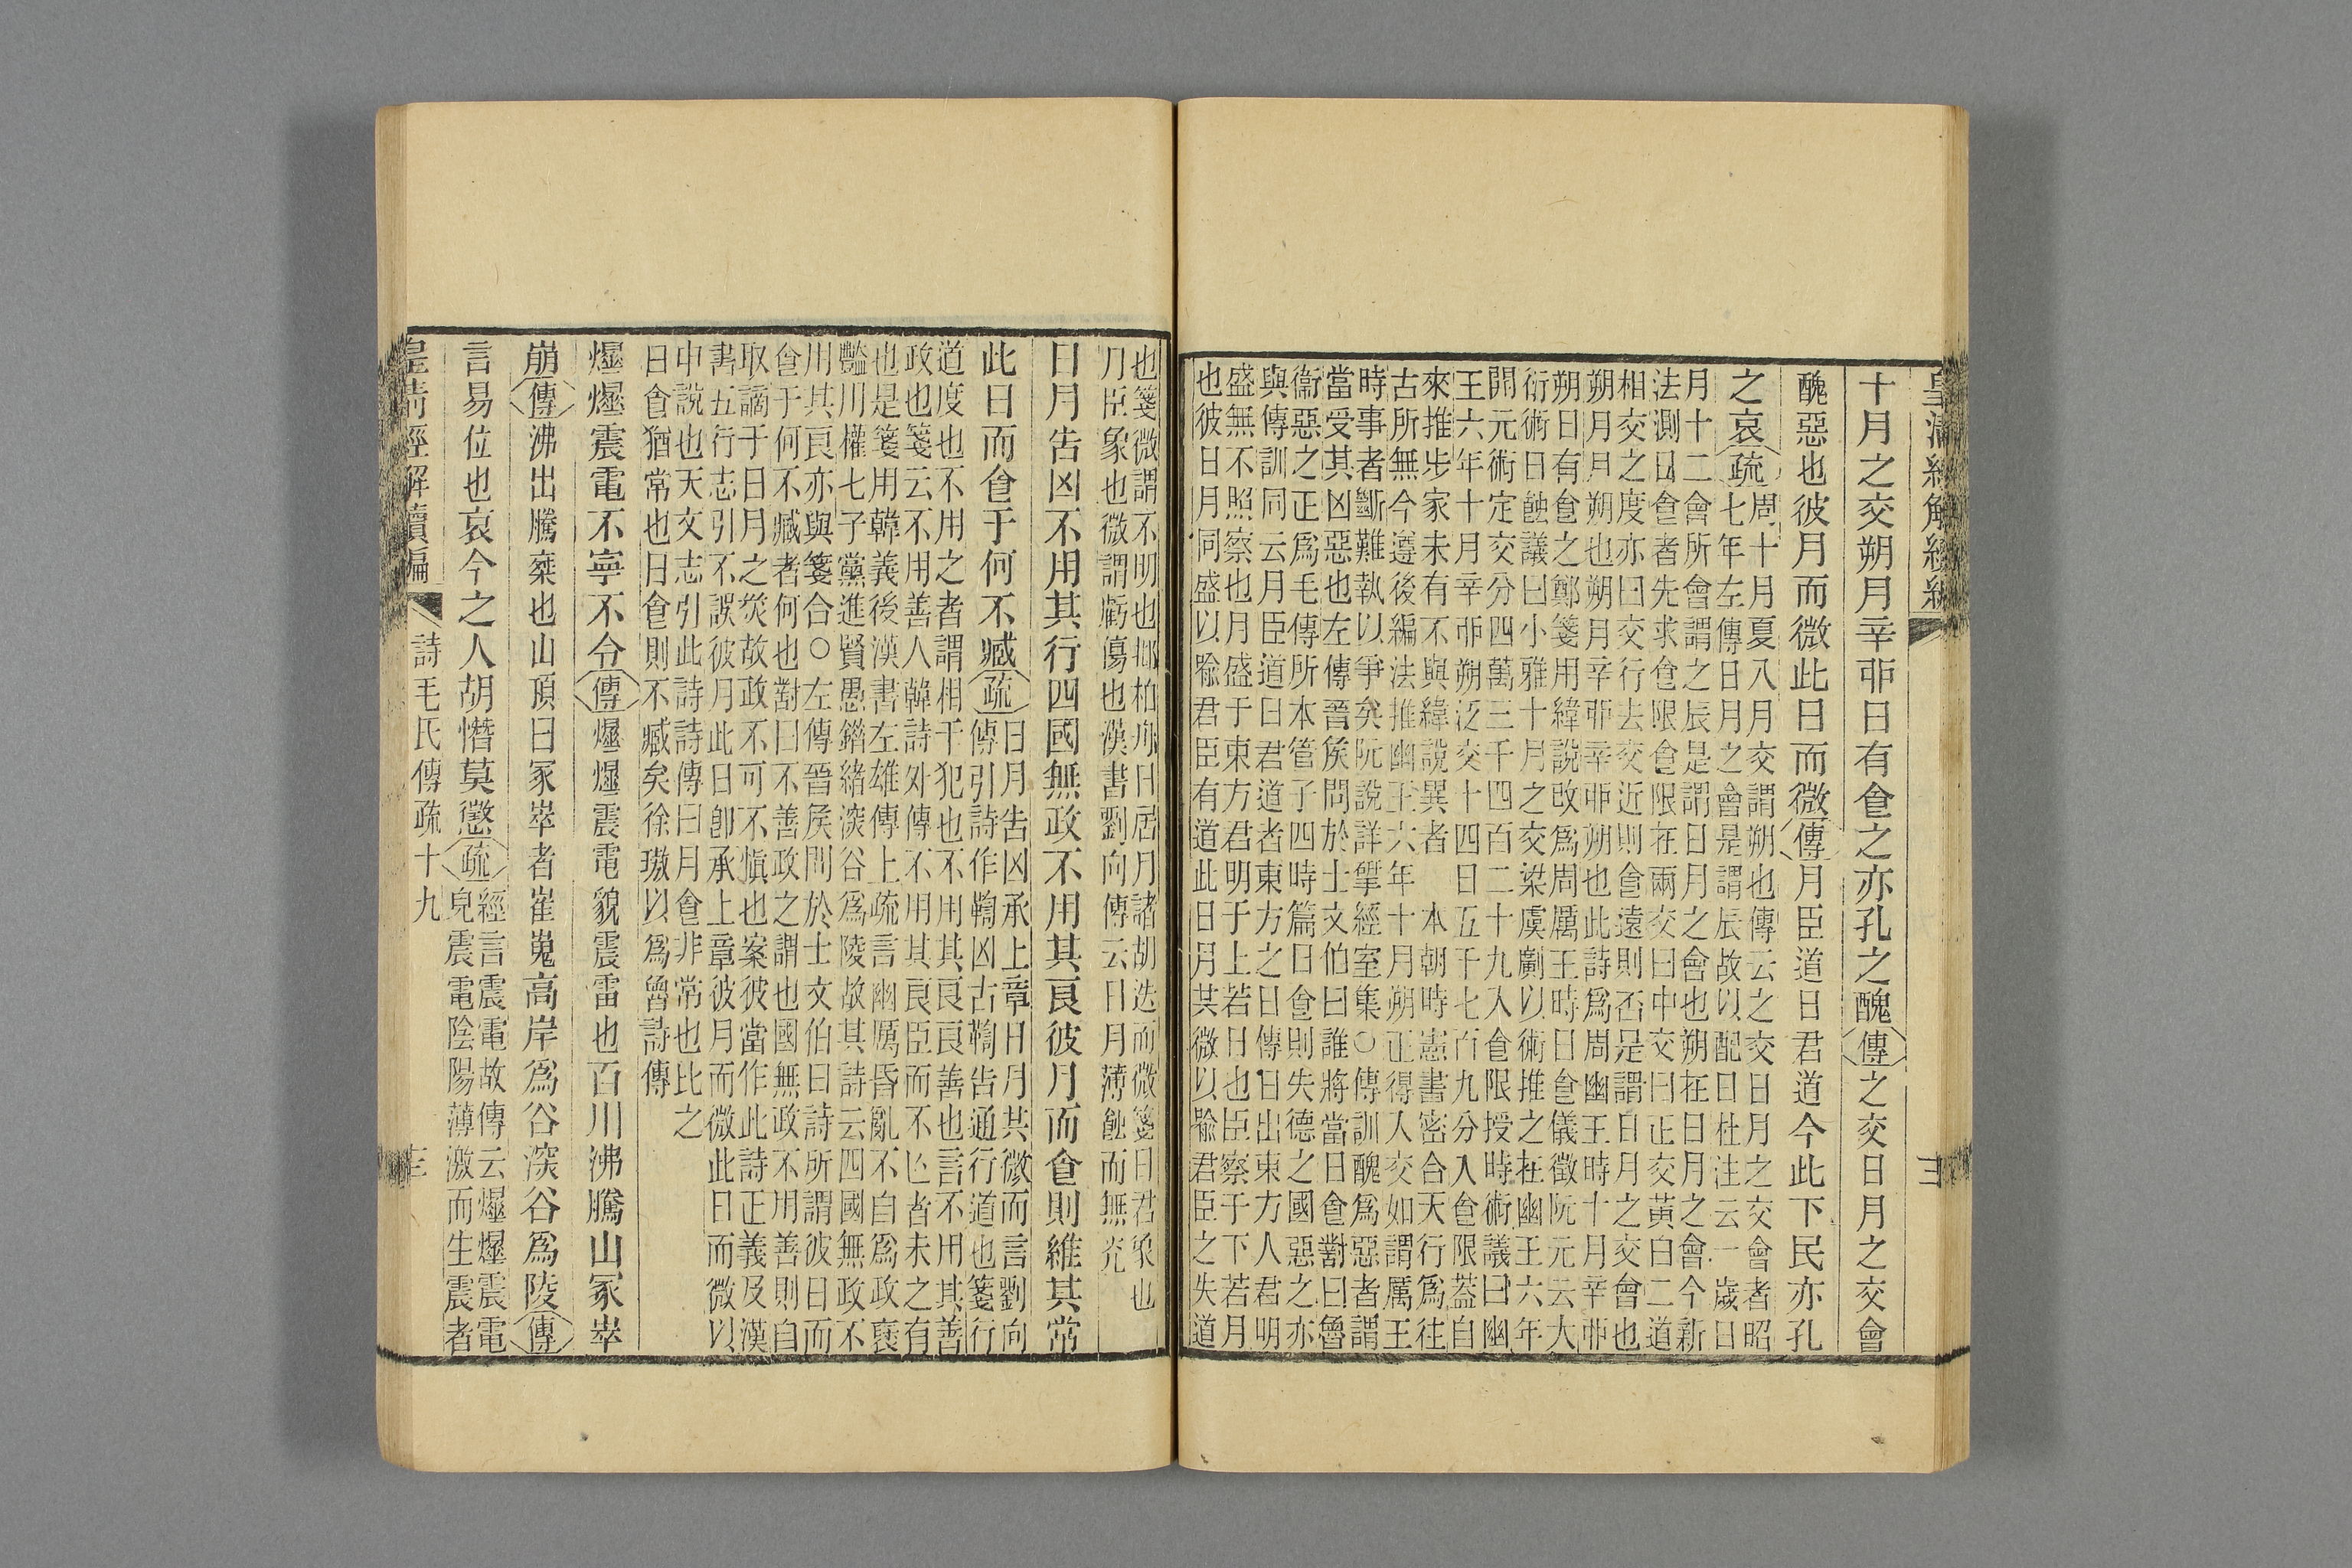 十月之交朔月辛丣日有𠊊之亦孔之醜傳之交日月之交會
醜惡也彼月而微此日而微傳月臣道日君道今此下民亦孔
之哀疏周十月夏八月交謂朔也傳云之交日月之交會者昭
七年左傳日月之會是謂辰故以配日杜注云一歲日
月十二會所會謂之辰是謂日月之會也朔在日月之會今新
法測日𠊊者先求𠊊限𠊊限在兩交曰中交曰正交黃白二道
相交之度亦曰交行去交近則𠊊遠則否是謂日月之交會也
朔月月朔也朔月辛丣辛丣朔也此詩爲周幽王時十月辛丣
朔日有𠊊之鄭箋用緯說改爲周厲王時日𠊊儀徵阮元云大
衍術日蝕議曰小雅十月之交梁虞𠠎以術推之在幽王六年
開元術定交分四萬三千四百二十九入𠊊限授時術議曰幽
王六年十月辛丣朔泛交十四日五千七百九分入𠊊限葢自
來推步家未有不與緯說異者 本朝時憲書密合天行爲往
古所無今遵後編法推幽王六年十月朔正得入交如謂厲王
時事者斷難執以爭矣阮說詳揅經室集○傳訓醜爲惡者謂
當受其凶惡也左傳晉矦問於士文伯曰誰將當日𠊊對曰魯
衞惡之正爲毛傳所本管子四時篇日𠊊則失德之國惡之亦
與傳訓同云月臣道日君道者東方之日傳日出東方人君明
盛無不照察也月盛于東方君明于上若日也臣察于下若月
也彼日月同盛以喻君臣有道此日月其微以喻君臣之失道
也箋微謂不明也邶柏舟日居月諸胡迭而微箋日君象也
月臣象也微謂虧傷也漢書劉向傳云日月薄蝕而無光
日月告凶不用其行四國無政不用其良彼月而𠊊則維其常
此日而𠊊于何不臧疏日月告凶承上章日月其微而言劉向
傳引詩作鞫凶古鞫告通行道也箋行
道度也不用之者謂相干犯也不用其良良善也言不用其善
政也箋云不用善人韓詩外傳不用其良臣而不亾者未之有
也是箋用韓義後漢書左雄傳上疏言幽厲昏亂不自爲政襃
豔用權七子黨進賢愚錯緒深谷爲陵故其詩云四國無政不
用其良亦與箋合○左傳晉矦問於士文伯曰詩所謂彼日而
𠊊于何不臧者何也對曰不善政之謂也國無政不用善則自
取謫于日月之災故政不可不愼也案彼當作此詩正義及漢
書五行志引不誤彼月此日卽承上章彼月而微此日而微以
中說也天文志引此詩詩傳曰月𠊊非常也比之
日𠊊猶常也日𠊊則不臧矣徐璈以爲魯詩傳
爗爗震電不寧不令傳爗爗震電貌震雷也百川沸騰山冢崒
崩傳沸出騰椉也山頂曰冢崒者崔嵬高岸爲谷深谷爲陵傳
言易位也哀今之人胡憯莫懲疏經言震電故傳云爗爗震電
皃震電陰陽薄激而生震者
皇清經解續編 詩毛氏傳疏十九 三